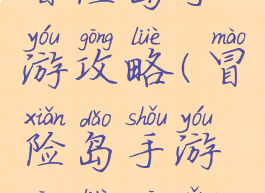 yóu gōng lüè mào
游攻略(冒
xiǎn dǎo shǒu yóu
险岛手游